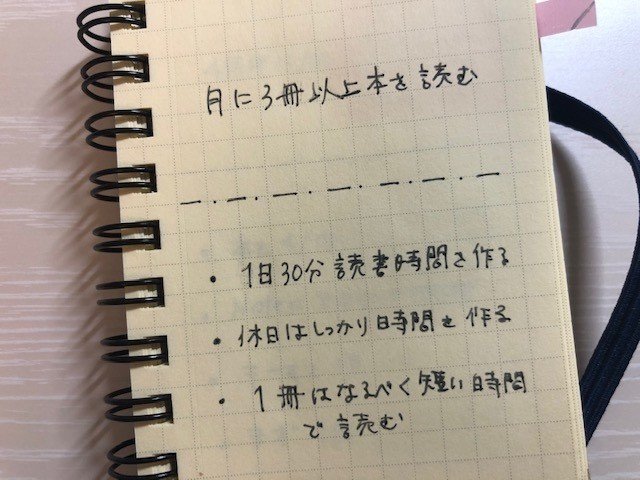 月に3冊以上本を読む
・1日30分読書時間を作る
・休日はしっかり時間を作る
・1冊はなるべく短い時間
で読む